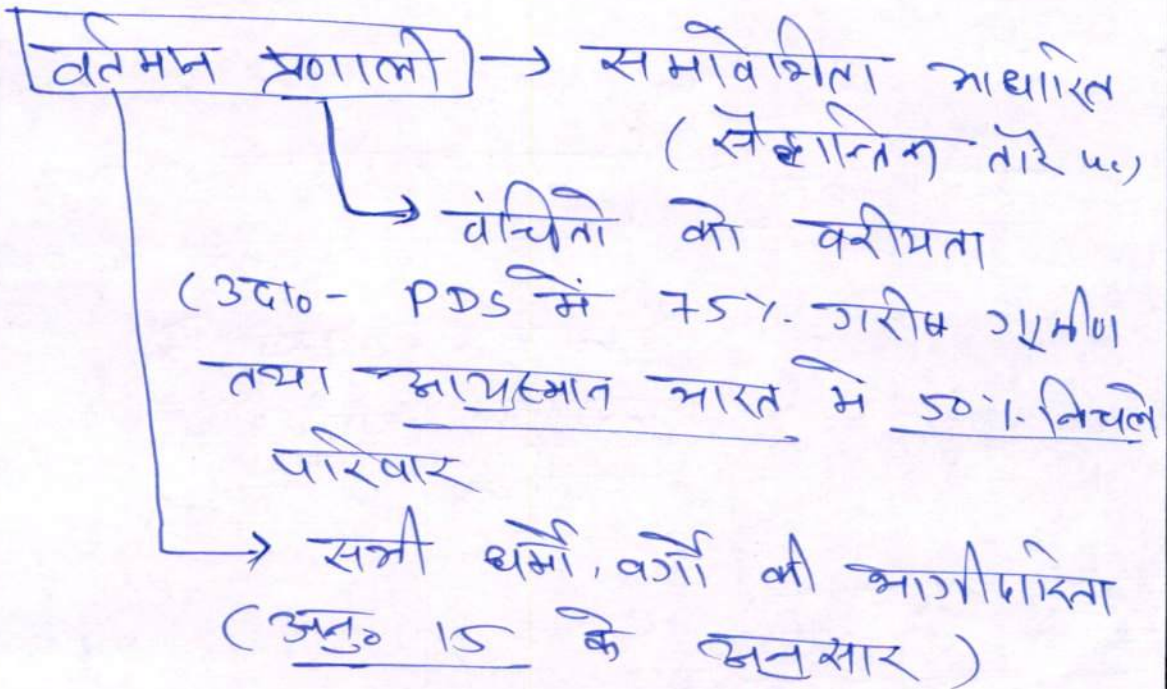 वर्तमान प्रणाली → समावेशिता आधारित
(सैद्धान्तिक तौर पर)
→ वंचितो को वरीयता
(उदा०- PDS में 75%. गरीब ग्रामीण
तथा आयुष्मान भारत मे 50%. निचले
परिवार
→ सभी धर्मों, वर्गों की भागीदारिता
(अनु० 15 के अनुसार)